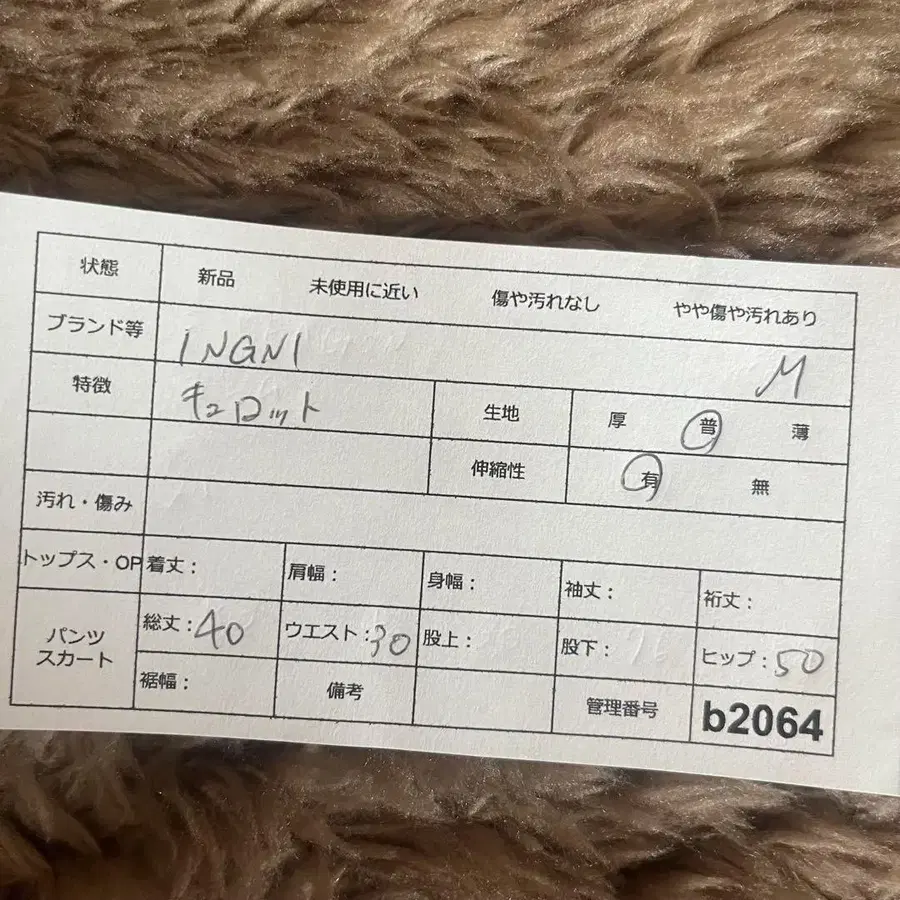 状態 新品 未使用に近い 傷や汚れなし やや傷や汚れあり
ブランド等 INGNI M
特徴 キュロット 生地 厚 普 薄
伸縮性 有 無
汚れ・傷み
トップス・OP 着丈: 肩幅: 身幅: 袖丈: 裄丈:
パンツ スカート 総丈:40 ウエスト:30 股上: 股下: ヒップ:50
裾幅: 備考 管理番号 b2064